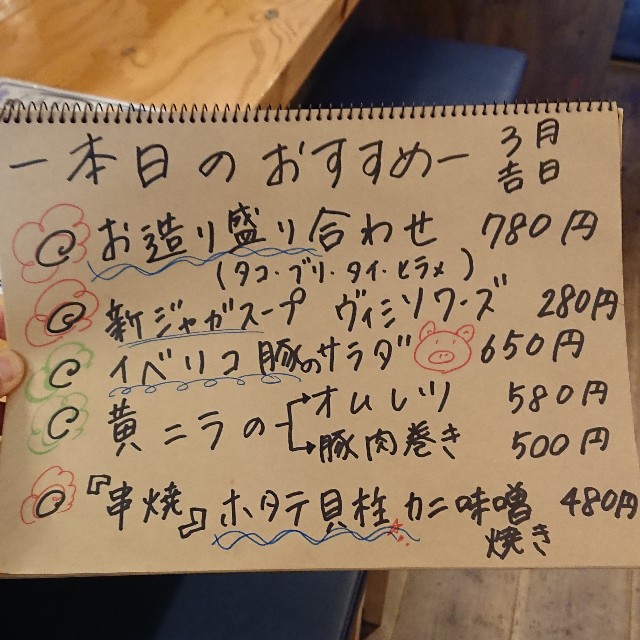 ー本日のおすすめー 3月吉日
お造り盛り合わせ 780円
(タコ・ブリ・タイ・ヒラメ)
新ジャガスープ ヴィシソワーズ 280円
イベリコ豚のサラダ 650円
黄ニラの オムレツ 580円
豚肉巻き 500円
『串焼』ホタテ貝柱カニ味噌焼き 480円